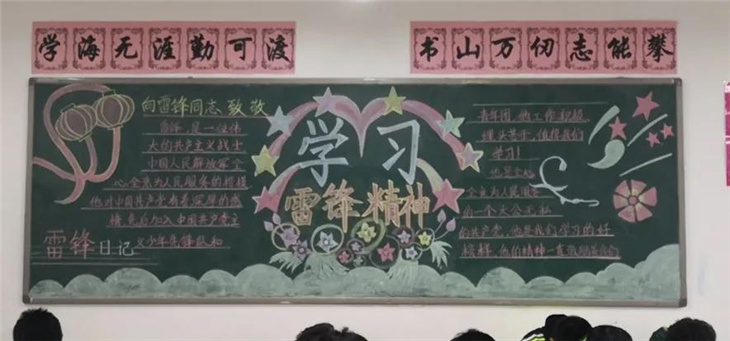 学海无涯勤可渡
书山万仞志能攀
向雷锋同志致敬
雷锋 是一位伟
大的共产主义战士
中国人民解放军
心全意为人民服务的楷模
他对中国共产党有着深厚的感
情
加入中国共产党
少年先锋队和
雷锋日记
学习
雷锋精神
青年团
工作积极
埋头苦干,值得我们
学习!
全意为人民服务
的一个大公无私
的共产党,他是我们学习的好
榜样,他的精神一直